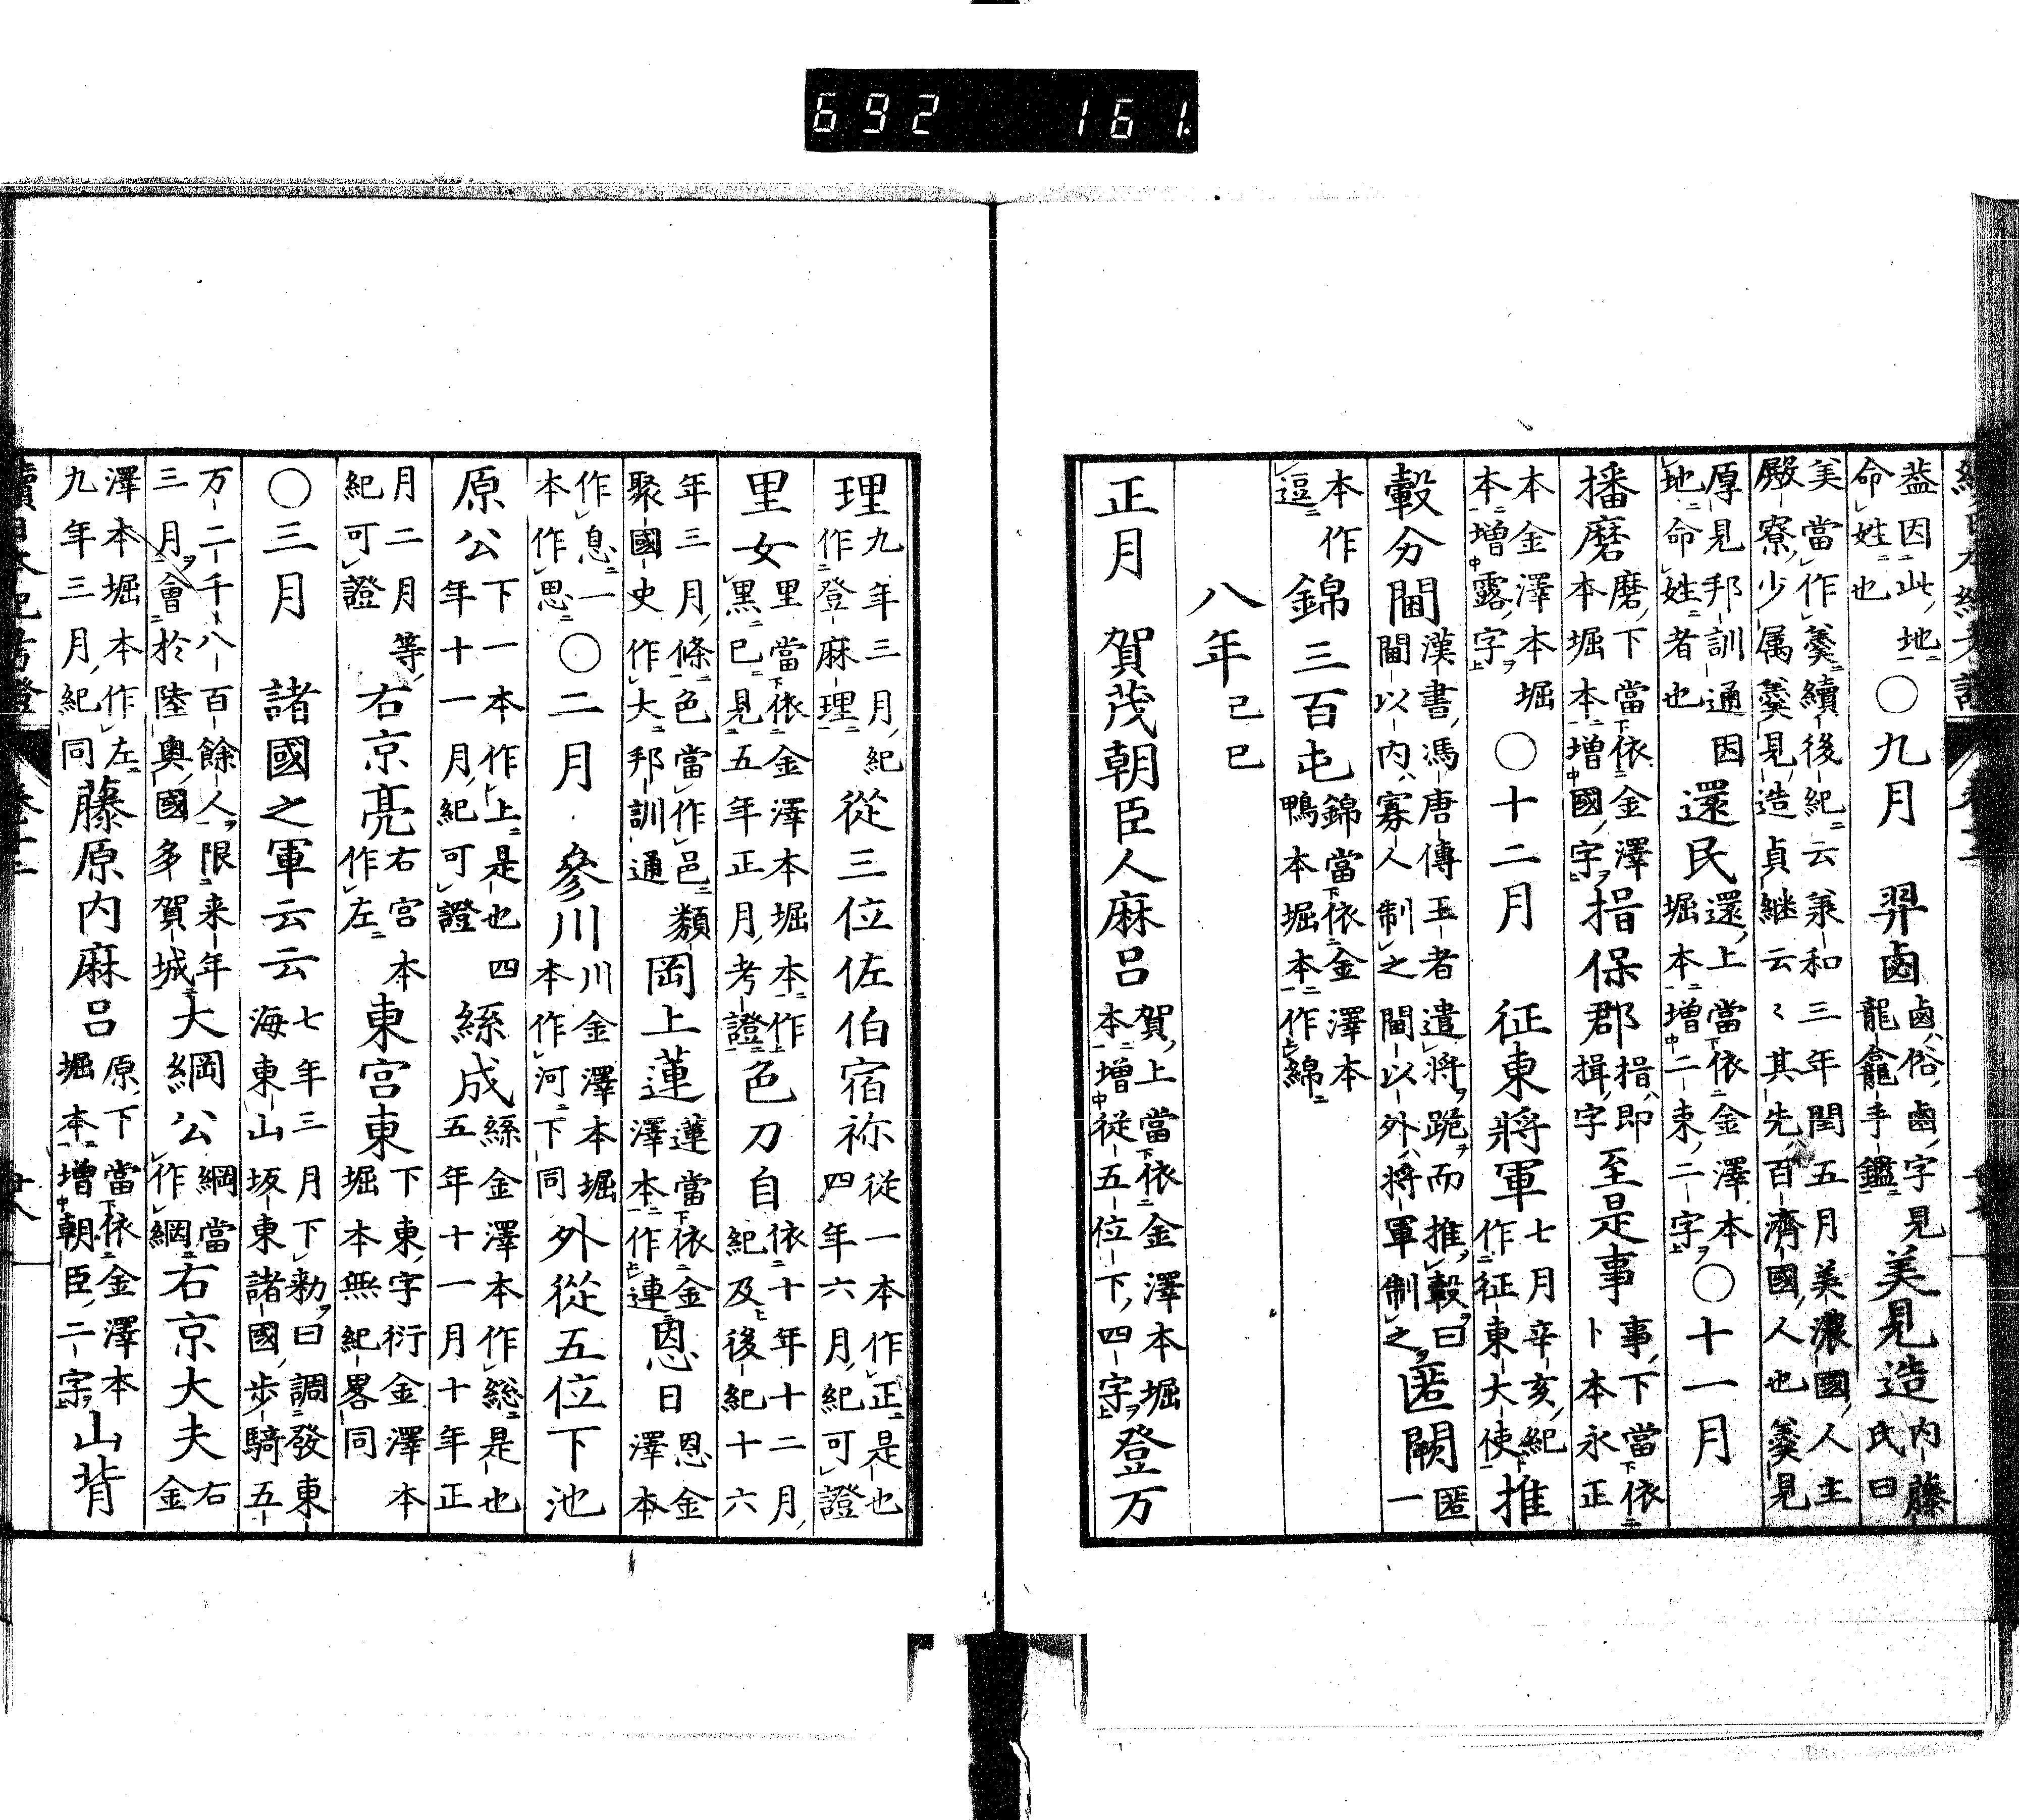 692 161
葢因此地
命姓也
○九月 羿鹵
鹵俗鹵字見
龍龕手鑑
美見造
内藤
氏曰
美當作羹續後紀云兼和三年閏五月美濃國人主
殿寮少属羹見造貞継云〻其先百濟國人也羹見
厚見邦訓通因
地命姓者也
還民
還上當依金澤本
堀本增二東二字
○十一月
播磨
磨下當依金澤
本堀本增國字
揖保郡
揖即
揖字
至是事
事下當依
卜本永正
本金澤本堀
本增露字
○十二月 征東將軍
七月辛亥紀
作征東大使
推
轂分閫
漢書馮唐傳王者遣將跪而推轂曰
閫以内寡人制之閫以外將軍制之
匿闕
匿
一
本作
逗
錦三百屯
錦當依金澤本
鴨本堀本作綿
八年己巳
正月 賀茂朝臣人麻呂
賀上當依金澤本堀
本增従五位下四字
登万
理
九年三月紀
作登麻理
從三位佐伯宿祢
從一本作正是也
四年六月紀可證
里女
里當依金澤本堀本作
黒巳見五年正月考證
色刀自
依十年十二月
紀及後紀十六
年三月條色當作邑類
聚國史作大邦訓通
岡上蓮
蓮當依金
澤本作連
恩日
恩金
澤本
作息一
本作思
○二月 參川
川金澤本堀
本作河下同
外從五位下池
原公
下一本作上是也四
年十一月紀可證
絲成
絲金澤本作総是也
五年十一月十年正
月二月等
紀可證
右京亮
右宮本
作左
東宮東
下東字衍金澤本
堀本無紀畧同
○三月 諸國之軍云云
七年三月下勅曰調發東
海東山坂東諸國歩騎五
万二千八百餘人限来年
三月會於陸奥國多賀城
大綱公
綱當
作網
右京大夫
右
金
澤本堀本作左
九年三月紀同
藤原内麻呂
原下當依金澤本
堀本增朝臣二字
山背